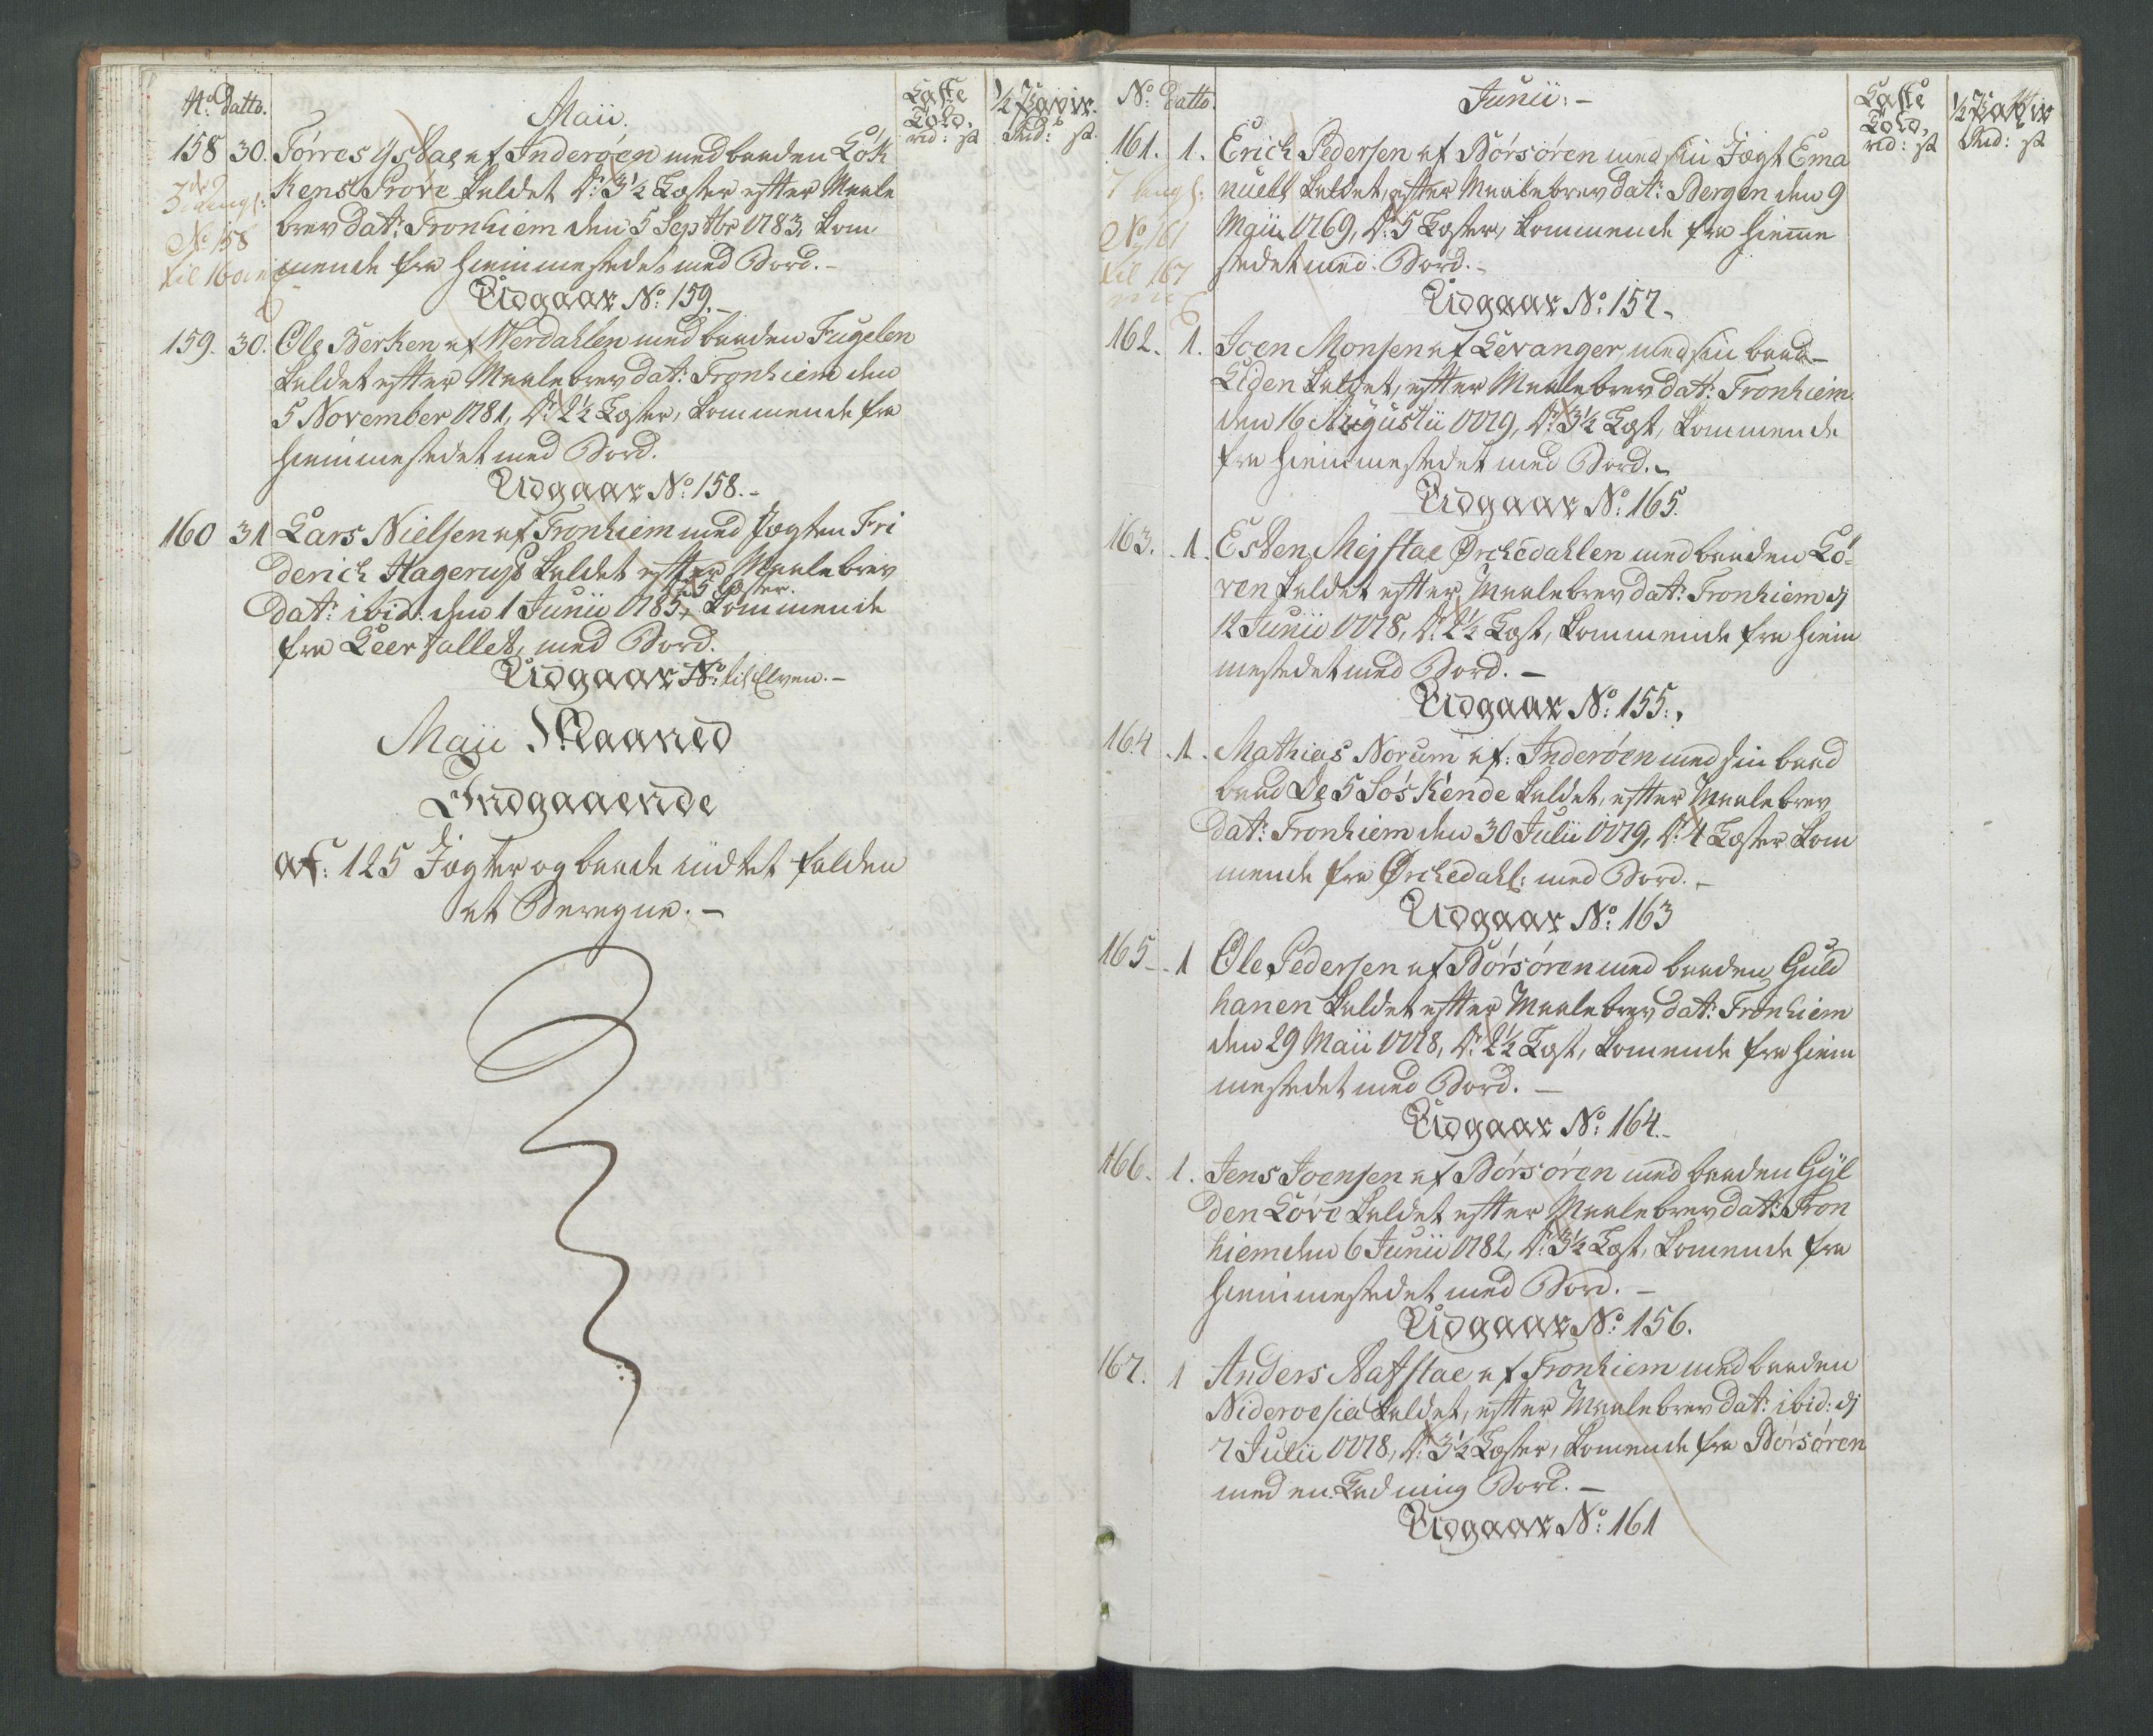 No. Datto. Maii. Læste Told. ½ Papir.
rd: s Rd: s
158 30. Törres Ystad af Inderöen med baaden Lök
kens Pröve kaldet Dr. 3½ Læster efter Maale
brev dat: Tronhiem den 5 Septbr 1783, kom
mende fra Hiemmestedet med Bord.-
No 158
til 160
Udgaar No: 159.-
159. 30. Ole Berken af Werdahlen med baaden Fugelen
kaldet efter Maalebrev dat: Tronhiem den
5 November 1781, Dr. 2½ Læster, kommende fra
Hiemmestedet med Bord.
Udgaar No: 158.-
160 31 Lars Nielsen af Tronhiem med Jægten Fri
derich Hagerup kaldet efter Maalebrev
5 Læster.
dat: ibid: den 1 Junii 1785, kommende
fra Leerfallet, med Bord.
Udgaar No: til Elven.-
Maii Maaned
Indgaaende
af: 125 Jægter og baade intet falden
at Beregne.-
No: Datto. Junii:- Læste Told. ½ Papir
rd: s Rd: s
161. 1. Erich Pedersen af Börsören med sin Jægt Ema
nuell kaldet, efter Maalebrev dat: Bergen den 9
Maii 1769, Dr. 5 Læster, kommende fra Hiemme
stedet med Bord.-
No 161
til 167
Udgaar No: 157.
162. 1. Joen Monsen af Levanger, med sin baad-
Liden kaldet, efter Maalebrev dat: Tronhiem
den 16 Augustii 1779, Dr. 3½ Læst, kommende
fra Hiemmestedet med Bord.-
Udgaar No: 165.
163. 1. Esten Mejstad Ørchedahlen med baaden Lö-
ven kaldet efter Maalebrev dat: Tronhiem dj
12 Junii 1778, Dr. 2½ Læst, kommende fra Hiem
mestedet med Bord.-
Udgaar No: 155.
164 1. Mathias Norum af: Inderöen med sin baad
baad De 5 Söskende kaldet, efter Maalebrev
dat: Tronhiem den 30 Julii 1779, Dr. 4 Læster kom
mende fra Ørchedahl: med Bord.-
Udgaar No: 163
165- 1 Ole Pedersen af Börsören med baaden Guld
hanen kaldet efter Maalebrev dat: Tronhiem
den 29 Maii 1778, Dr. 2½ Læst, komende fra Hiem
mestedet med Bord.-
Udgaar No: 164.-
166. 1. Jens Joensen af Börsören med baaden Gyl
den Löve kaldet efter Maalebrev dat: Tron
hiem den 6 Junii 1782, Dr. 3½ Læst, komende fra
Hiemmestedet med Bord.-
Udgaar No: 156.
167. 1 Anders Nafstad af Tronhiem med baaden
Niderosia kaldet, efter Maalebrev dat: ibid: dj
7 Julii 1778, Dr. 3½ Læster, komende fra Börsören
med en Ladning Bord.-
Udgaar No: 161